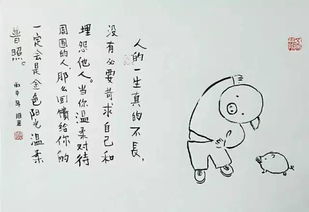 人的一生真的不长，
没有必要苛求自己和
埋怨他人。当你温柔对待
周围的人，那么回馈给你的
一定会是金色阳光温柔
普照。